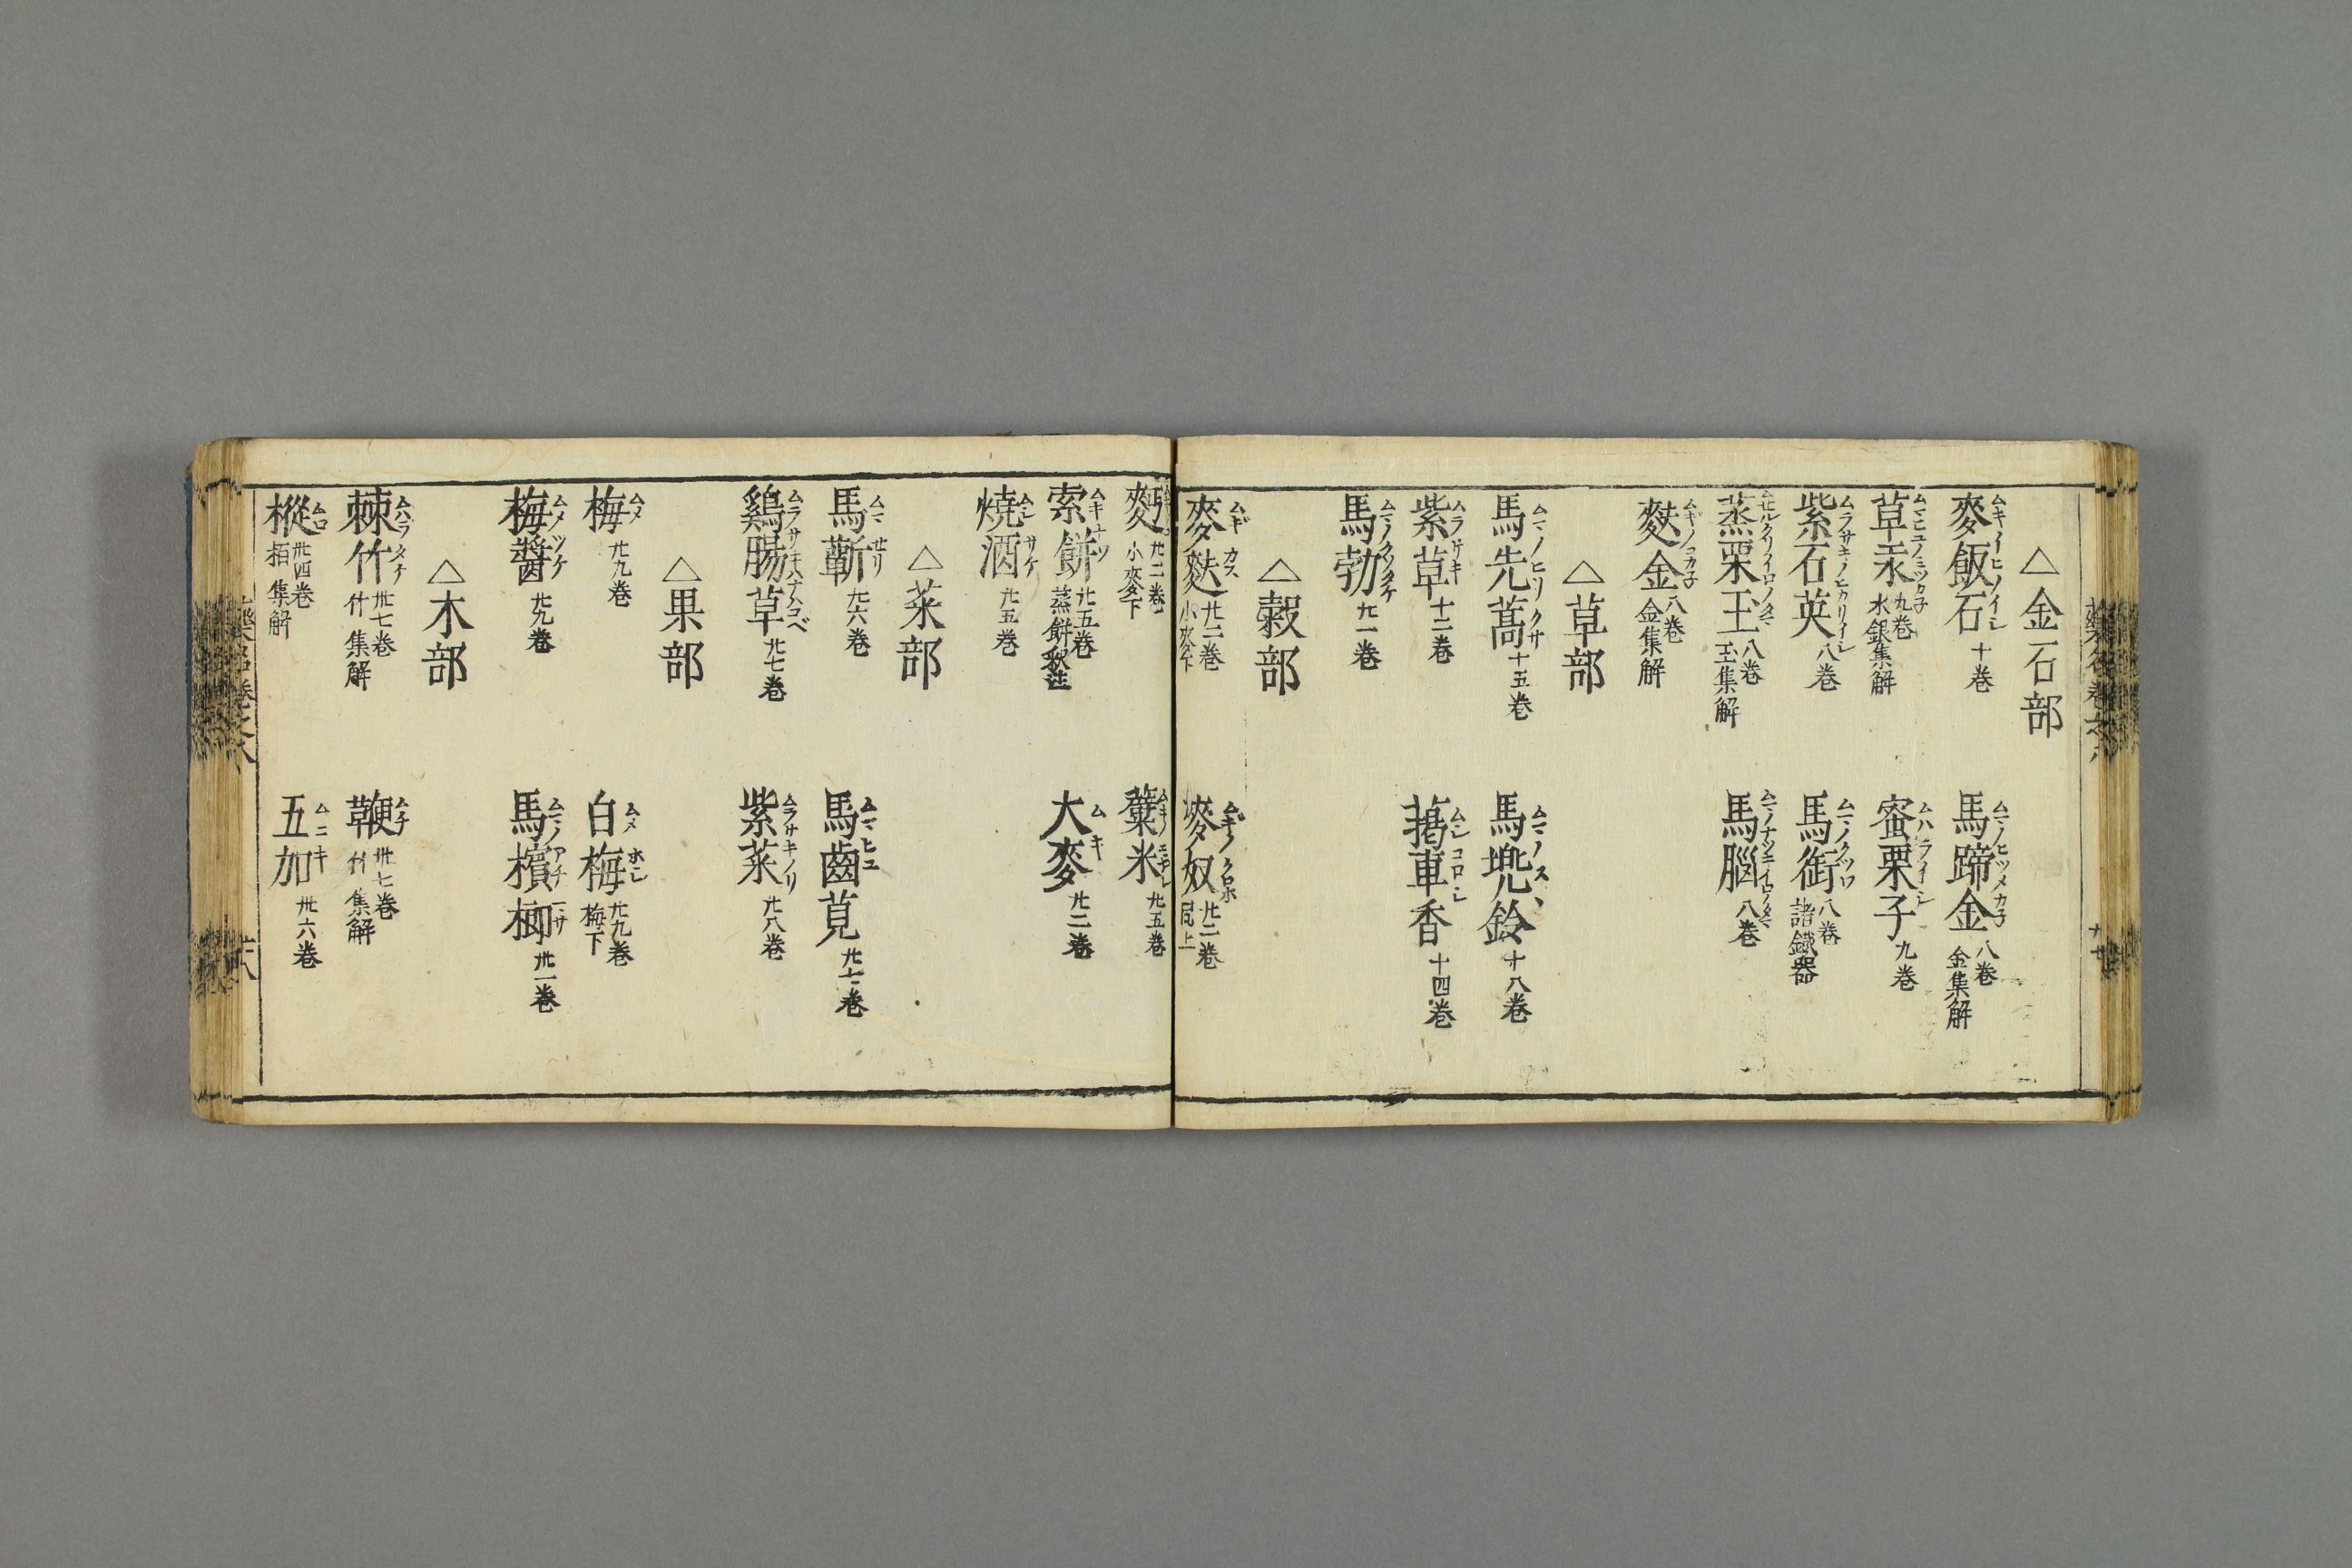 △金石部
麥飯石 ムキイヒノイシ 十巻
馬蹄金 ムマノヒツメカ子 八巻 金集解
草汞 ムマヒユノミツカ子 九巻 水銀集解
蜜栗子 ムハライシ 九巻
紫石英 ムラサキノヒカリイシ 八巻
馬銜 ムマノクツワ 八巻 諸鐵器
蒸栗玉 ムセルクリノイロノタマ 八巻 玉集解
馬腦 八巻
麩金 ムギノコカ子 八巻 金集解
△草部
馬先蒿 ムマノヒリクサ 十五巻
馬兜鈴 ムマノスヾ 十八巻
紫草 ムラサキ 十二巻
藒車香 ムシコロシ 十四巻
馬勃 ムマノクソタケ 廿一巻
△穀部
麥麩 ムギカス 廿二巻 小麥下
麥奴 ムギノクロホ 廿二巻 同上
麪 廿二巻 小麥下
糵米 廿五巻
索餅 ムキナワ 廿五巻 蒸餅
大麥 ムキ 廿二巻
燒酒 ムシサケ 廿五巻
△菜部
馬蘄 ムマセリ 廿六巻
馬齒莧 ムマヒユ 廿七巻
鷄腸草 廿七巻
紫菜 ムラサキノリ 廿八巻
△果部
梅 ムメ 廿九巻
白梅 ムメホシ 廿九巻 梅下
梅醬 ムメツケ 廿九巻
馬檳榔 卅一巻
△木部
棘竹 ムハラタケ 卅七巻 竹集解
鞭 ムチ 卅七巻 竹集解
樅 ムロ 卅四巻 栢集解
五加 ムコキ 卅六巻